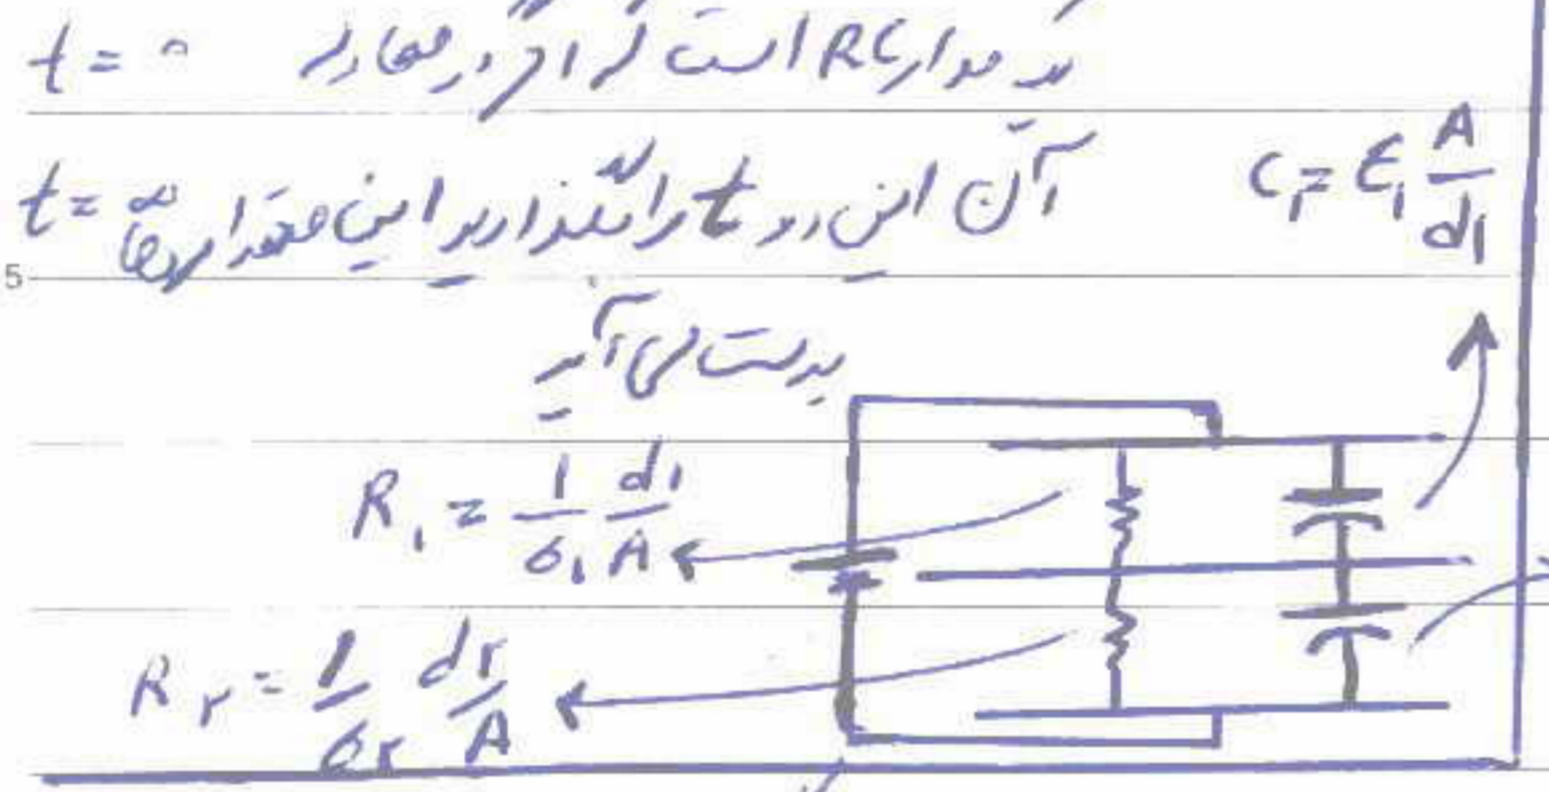 یک مدار RC است که اگر در معادله t = ۰
آن این دو t را بگذارید این مقدارها t = ∞
C₁ = ε₁ A/d₁
بدست می آید
R₁ = 1/σ₁ d₁/A
R۲ = 1/σ۲ d۲/A
5